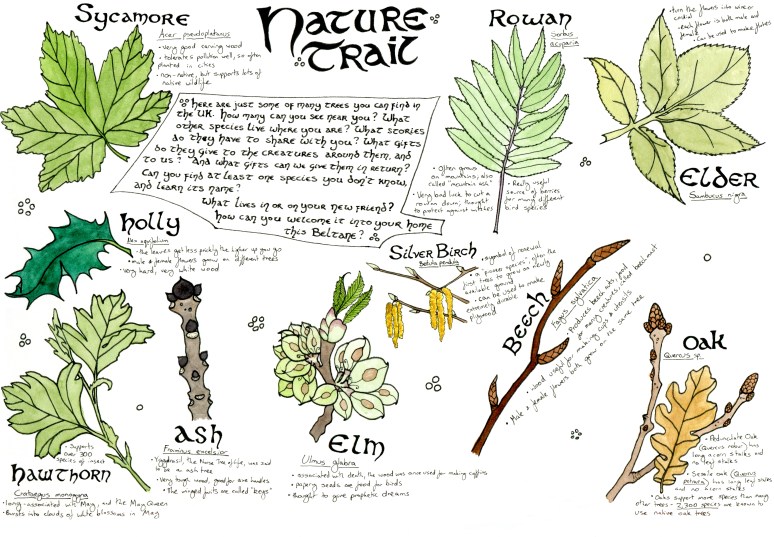 Nature
Trail
Sycamore
Acer pseudoplatanus
• Very good carving wood
• tolerates pollution well, so often
planted in cities
• non-native, but supports lots of
native wildlife
Here are just some of many trees you can find in
the UK. How many can you see near you? What
other species live where you are? What stories
do they have to share with you? What gifts
do they give to the creatures around them, and
to us? And what gifts can we give them in return?
Can you find at least one species you don't know,
and learn its name?
What lives in or on your new friend?
How can you welcome it into your home
this Beltane?
Rowan
Sorbus
aucuparia
• Often grows
on mountains, also
called "mountain ash"
• Very bad luck to cut a
rowan down, thought
to protect against witches
• Really useful
source of berries
for many different
bird species
• turn the flowers into wine or
cordial
• each flower is both male and
female
• Can be used to make flutes
Elder
Sambucus nigra
Holly
Ilex aquifolium
• the leaves get less prickly the higher up you go
• male & female flowers grow on different trees
• very hard, very white wood
Silver Birch
Betula pendula
• symbol of renewal
• a 'pioneer species', often the
first trees to grow on newly
available ground
• Can be used to make
extremely durable
plywood
Beech
Fagus sylvatica
• Produces beech nuts, food
for many creatures called beech mast
• Wood useful for making cups & utensils
• Male & female flowers both grow on the same tree
Oak
Quercus sp.
• Pedunculate Oak
(Quercus robur) has
long acorn stalks and
no leaf stalks
• Sessile oak (Quercus
petraea) has long leaf stalks
and no acorn stalks
• Oaks support more species than many
other trees - 2,300 species are known to
use native oak trees
Hawthorn
• Supports
over 300
species of insect
Crataegus monogyna
• long associated with May, and the May Queen
• Bursts into clouds of white blossoms in May
Ash
Fraxinus excelsior
• Yggdrasil, the Norse Tree of life, was said
to be an ash tree
• Very tough wood, good for axe handles
• The winged fruits are called "keys"
Elm
Ulmus glabra
• associated with death, the wood was once used for making coffins
• papery seeds are food for birds
• thought to give prophetic dreams